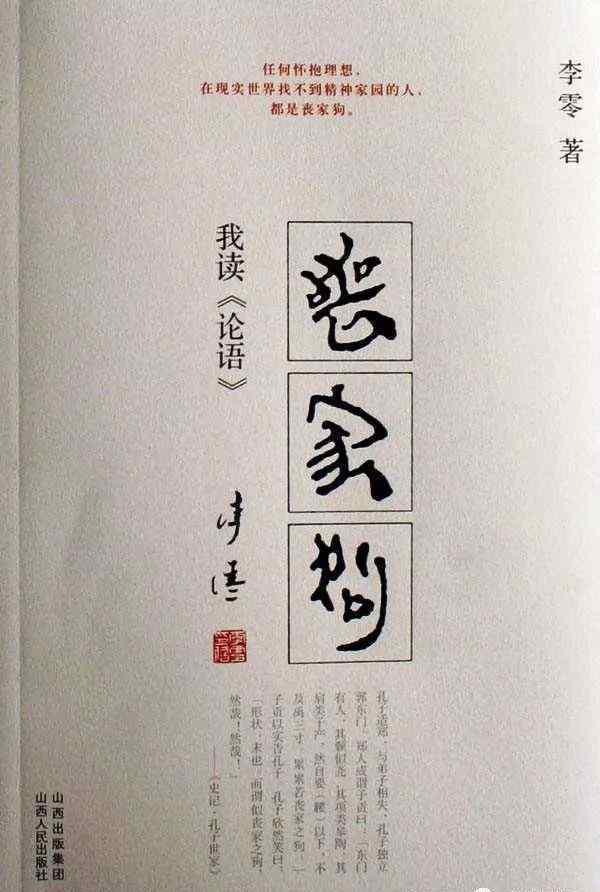 李零 著
任何怀抱理想，
在现实世界找不到精神家园的人，
都是丧家狗。
丧家狗
我读《论语》
孔子适郑，与弟子相失，孔子独立
郭东门。郑人或谓子贡曰：「东门
有人，其颡似尧，其项类皋陶，其
肩类子产，然自要（腰）以下，不
及禹三寸，累累若丧家之狗。」
子贡以实告孔子。孔子欣然笑曰：
「形状，末也。而谓似丧家之狗，
然哉！然哉！」
——《史记·孔子世家》
山西出版集团
山西人民出版社